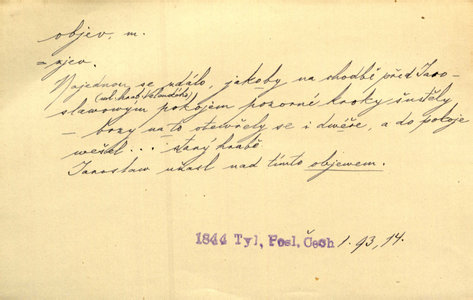 objev, m.
= zjev.
Najednou se zdálo, jakoby na chodbě před Jaro-
(ml. hrab.
slawowým pokojem pozorné kroky šustěly
— brzy na to otewřely se i dwéře, a do pokoje
wešel ... starý hrabě
Jaroslaw užasl nad tímto objewem.
1844 Tyl, Posl. Čech 1. 93, 14.